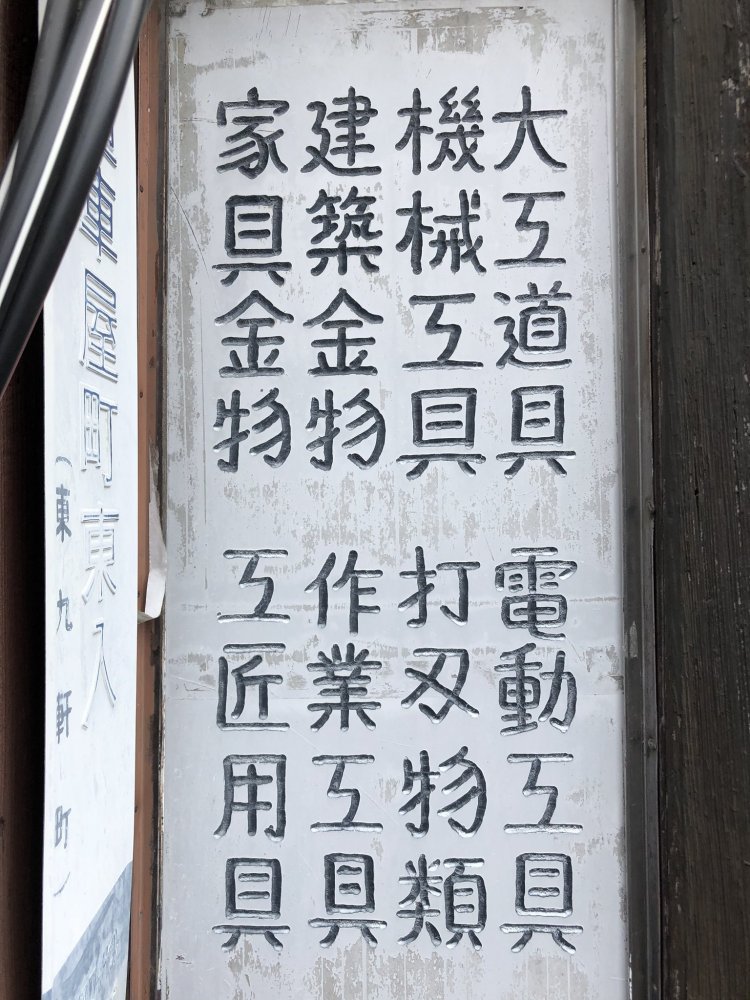 大工道具 電動工具
機械工具 打刃物類
建築金物 作業工具
家具金物 工匠用具
車屋町東入
(東九軒町)